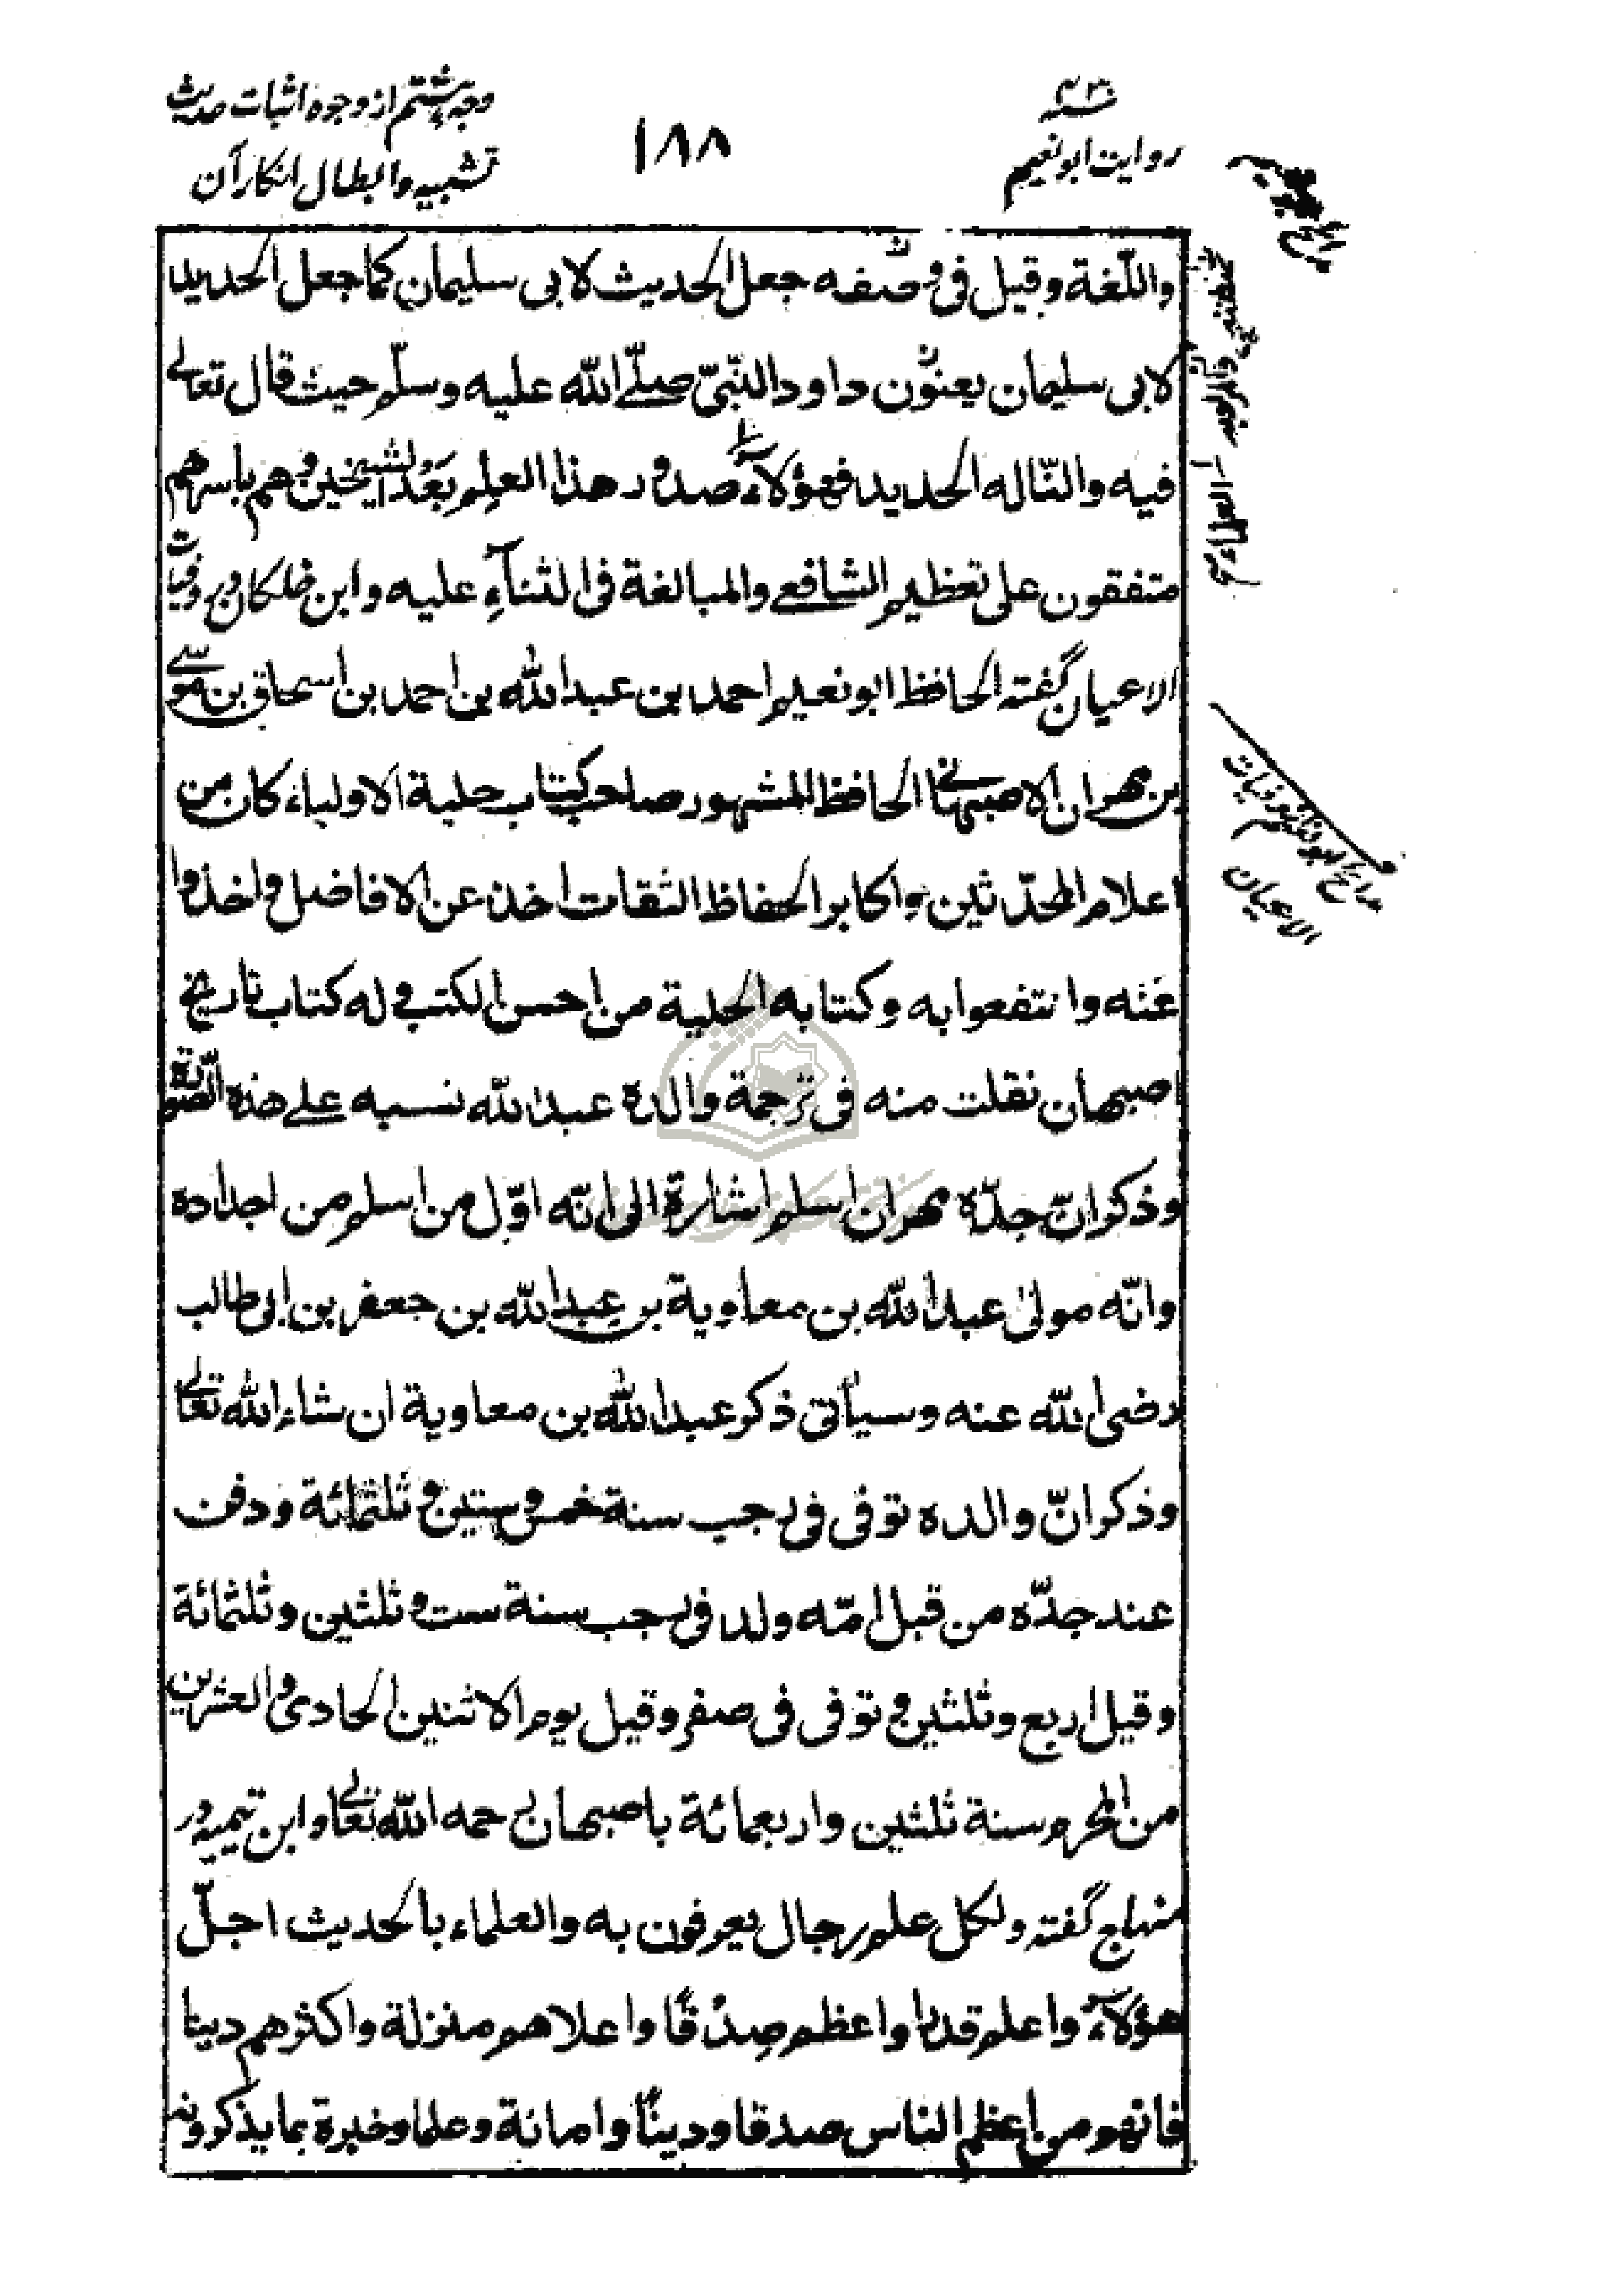 سنه ۴۳۰
روایت ابو نعیم
۱۸۸
وجه هشتم از وجوه اثبات حدیث
تشبیه و ابطال انکار آن
واللّغة وقیل فی وصفه جعل الحدیث لابی سلیمان کما جعل الحدید
لابی سلیمان یعنون داود النّبیّ صلّے اللّه علیه وسلّم حیث قال تعالے
فیه والنّاله الحدید فهؤلاء صدور هذا العلم بعد الشیخین وهم باسرهم
متفقون علی تعظیم الشافعے والمبالغة فی الثناء علیه وابن خلکان در وفیات
الاعیان گفته الحافظ ابو نعیم احمد بن عبد اللّه بن احمد بن اسحاق بن موسے
بن مهران الاصبهانے الحافظ المشهور صاحب کتاب حلیة الاولیاء کان من
اعلام المحدّثین و اکابر الحفاظ الثقات اخذ عن الافاضل واخذوا
عنه وانتفعوا به وکتابه الحلیة من احسن الکتب وله کتاب تاریخ
اصبهان نقلت منه فی ترجمة والده عبد اللّه نسبه علے هذه الصّورة
وذکر انّ جدّه مهران اسلم اشارة الی انّه اوّل من اسلم من اجداده
وانّه مولی عبد اللّه بن معاویة بن عبد اللّه بن جعفر بن ابی طالب
رضی اللّه عنه وسیأتی ذکر عبد اللّه بن معاویة ان شاء اللّه تعالے
وذکر انّ والده توفی فی رجب سنة خمس وستین وثلثمائة ودفن
عند جدّه من قبل امّه ولد فی رجب سنة ست وثلثین وثلثمائة
وقیل اربع وثلثین وتوفی فی صفر وقیل یوم الاثنین الحادی والعشرین
من المحرم سنة ثلثین واربعمائة باصبهان رحمه اللّه تعالے وابن تیمیه در
منهاج گفته ولکل علم رجال یعرفون به والعلماء بالحدیث اجلّ
هؤلاء واعلم قدرا واعظم صدقًا واعلاهم منزلة واکثرهم دینا
فانهم من اعظم الناس صدقا ودینًا وامانة وعلما وخبرة بما یذکرونه
مدایح ابو نعیم از وفیات
الاعیان